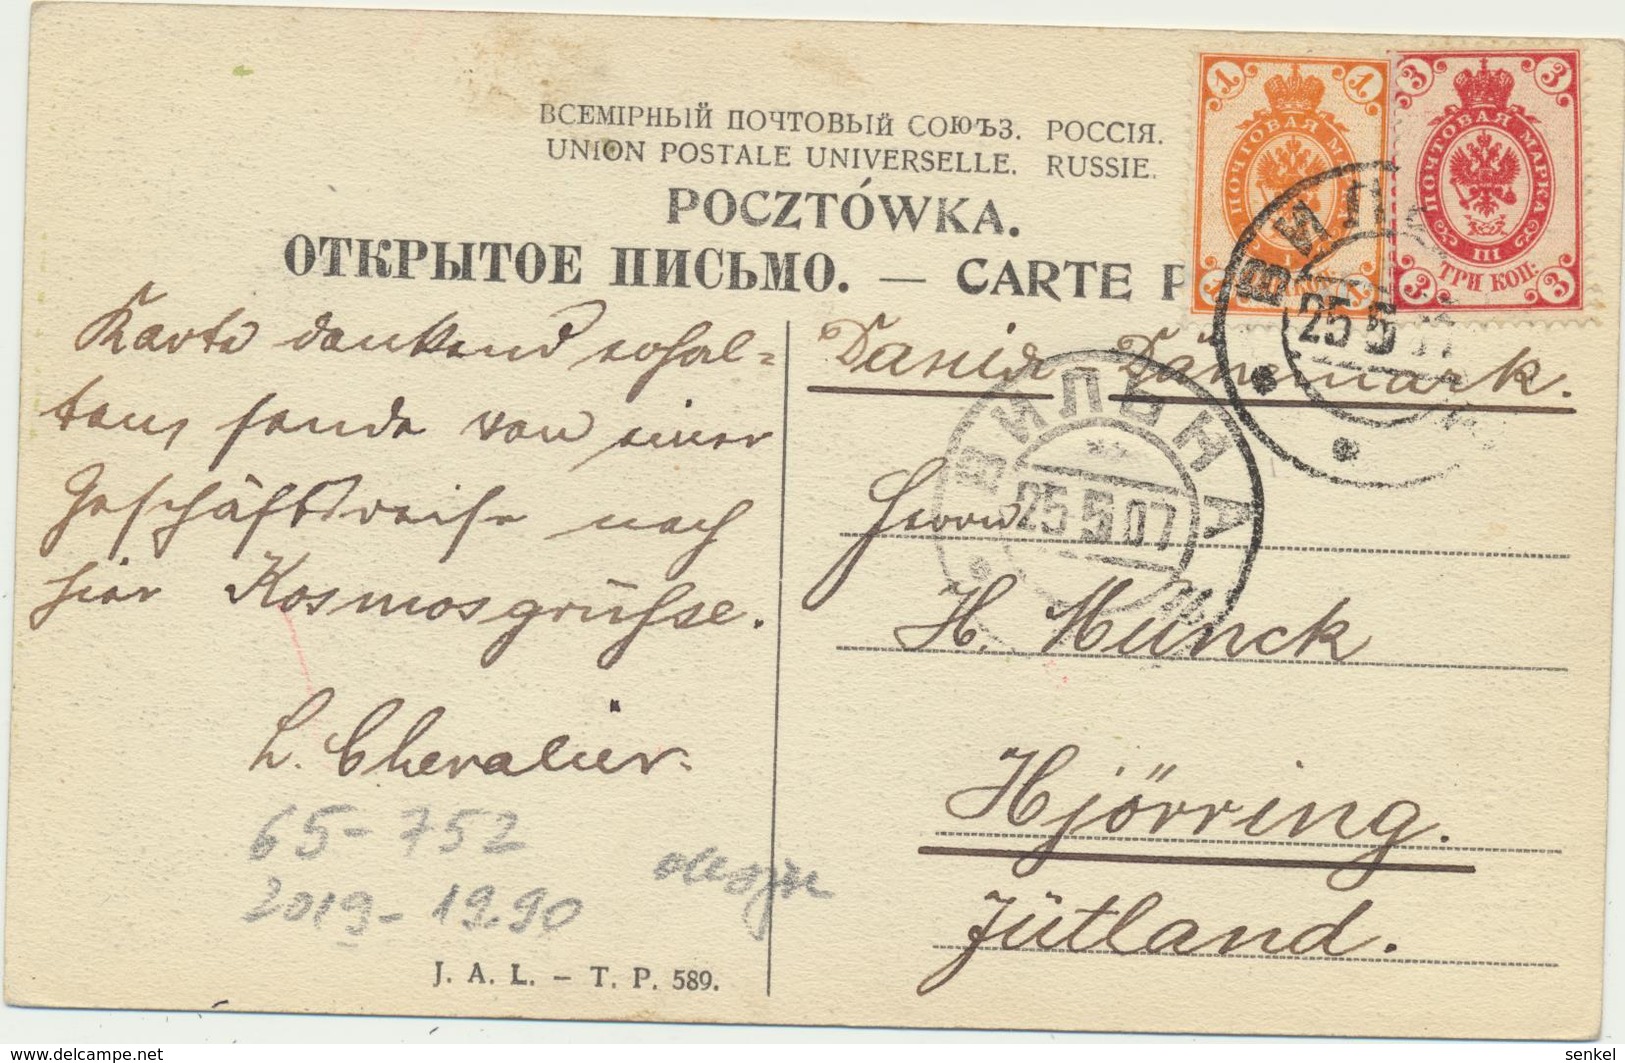 ВСЕМІРНЫЙ ПОЧТОВЫЙ СОЮЪЗ. РОССІЯ.
UNION POSTALE UNIVERSELLE. RUSSIE.
POCZTÓWKA.
ОТКРЫТОЕ ПИСЬМО. — CARTE P
1 1
ПОЧТОВАЯ М
1
3 3
ПОЧТОВАЯ МАРКА
III
ТРИ КОП.
3 3
ВИЛ
25 5 07
ВИЛЬНА
25 5 07
Karte dankend erhal=
ten, sende von einer
Geschäftsreise nach
hier Kosmosgrüsse.
L. Chevalier.
Данія Dänemark.
Herrn
H. Munck
Hjörring.
Jütland.
65-752
2019-19.90
J. A. L. – T. P. 589.
www.delcampe.net
senkel